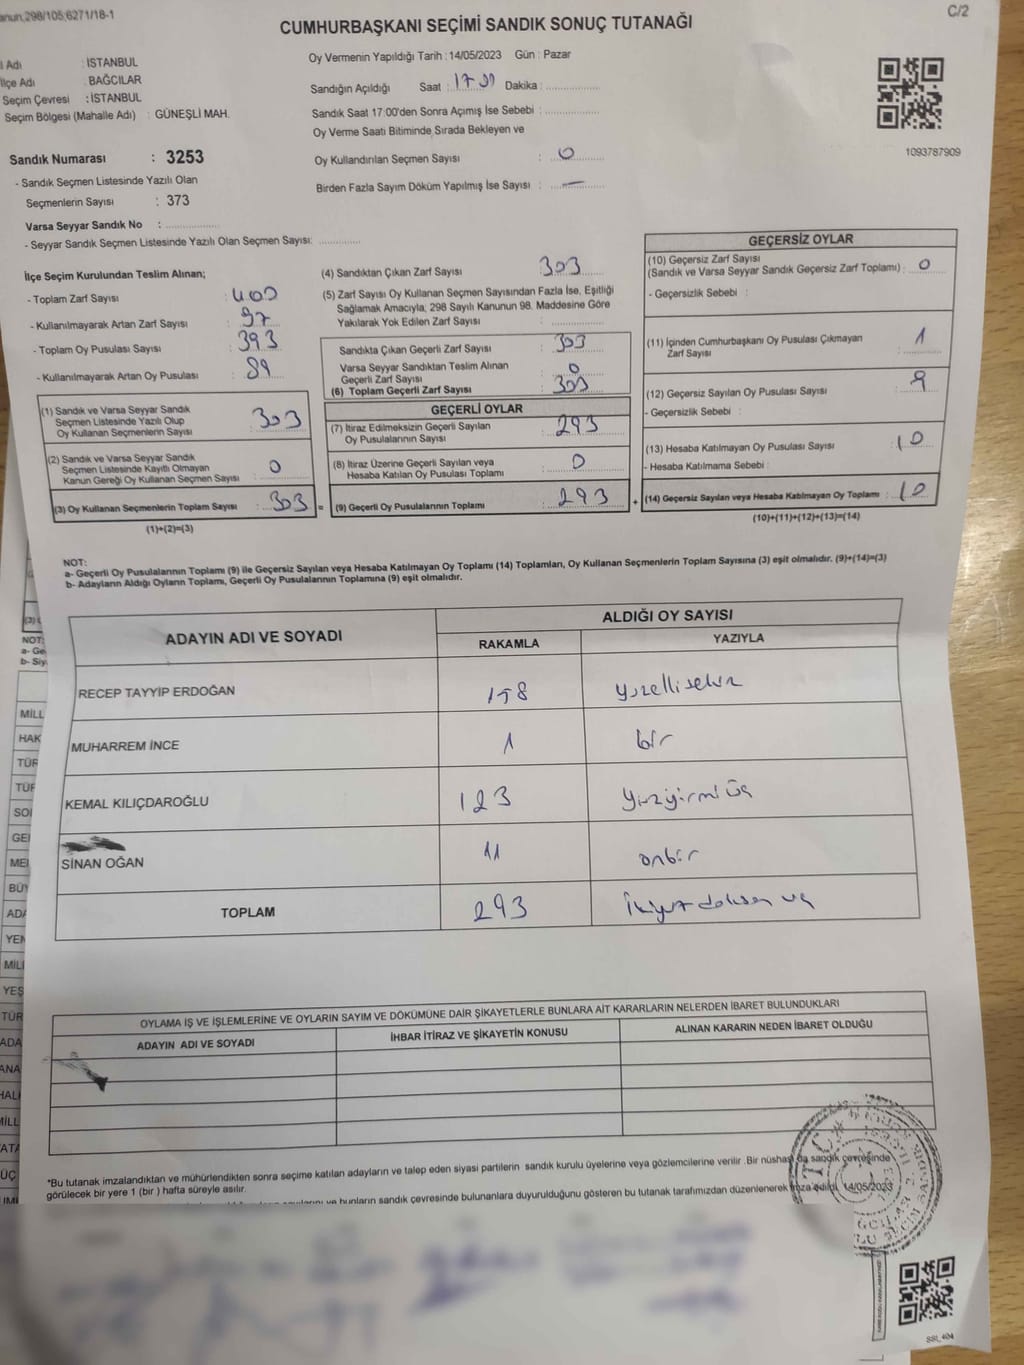 anun,298/105;6271/18-1
C/2
CUMHURBAŞKANI SEÇİMİ SANDIK SONUÇ TUTANAĞI
l Adı : İSTANBUL
İlçe Adı : BAĞCILAR
Seçim Çevresi : İSTANBUL
Seçim Bölgesi (Mahalle Adı) : GÜNEŞLİ MAH.
Sandık Numarası : 3253
- Sandık Seçmen Listesinde Yazılı Olan
Seçmenlerin Sayısı : 373
Varsa Seyyar Sandık No :
- Seyyar Sandık Seçmen Listesinde Yazılı Olan Seçmen Sayısı:
Oy Vermenin Yapıldığı Tarih : 14/05/2023 Gün : Pazar
Sandığın Açıldığı Saat : Dakika :
Sandık Saat 17:00'den Sonra Açılmış İse Sebebi :
Oy Verme Saati Bitiminde Sırada Bekleyen ve
Oy Kullandırılan Seçmen Sayısı : 0
Birden Fazla Sayım Döküm Yapılmış İse Sayısı : —
1093787909
İlçe Seçim Kurulundan Teslim Alınan;
- Toplam Zarf Sayısı : 400
- Kullanılmayarak Artan Zarf Sayısı : 97
- Toplam Oy Pusulası Sayısı : 393
- Kullanılmayarak Artan Oy Pusulası : 89
(1) Sandık ve Varsa Seyyar Sandık
Seçmen Listesinde Yazılı Olup
Oy Kullanan Seçmenlerin Sayısı : 303
(2) Sandık ve Varsa Seyyar Sandık
Seçmen Listesinde Kayıtlı Olmayan
Kanun Gereği Oy Kullanan Seçmen Sayısı : 0
(3) Oy Kullanan Seçmenlerin Toplam Sayısı : 303 =
(1)+(2)=(3)
(4) Sandıktan Çıkan Zarf Sayısı : 303
(5) Zarf Sayısı Oy Kullanan Seçmen Sayısından Fazla İse, Eşitliği
Sağlamak Amacıyla; 298 Sayılı Kanunun 98. Maddesine Göre
Yakılarak Yok Edilen Zarf Sayısı :
Sandıkta Çıkan Geçerli Zarf Sayısı : 303
Varsa Seyyar Sandıktan Teslim Alınan
Geçerli Zarf Sayısı : 0
(6) Toplam Geçerli Zarf Sayısı : 303
GEÇERLİ OYLAR
(7) İtiraz Edilmeksizin Geçerli Sayılan
Oy Pusulalarının Sayısı : 293
(8) İtiraz Üzerine Geçerli Sayılan veya
Hesaba Katılan Oy Pusulası Toplamı : 0
(9) Geçerli Oy Pusulalarının Toplamı : 293 +
GEÇERSİZ OYLAR
(10) Geçersiz Zarf Sayısı
(Sandık ve Varsa Seyyar Sandık Geçersiz Zarf Toplamı) : 0
- Geçersizlik Sebebi :
(11) İçinden Cumhurbaşkanı Oy Pusulası Çıkmayan
Zarf Sayısı : 1
(12) Geçersiz Sayılan Oy Pusulası Sayısı : 9
- Geçersizlik Sebebi :
(13) Hesaba Katılmayan Oy Pusulası Sayısı : 10
- Hesaba Katılmama Sebebi :
(14) Geçersiz Sayılan veya Hesaba Katılmayan Oy Toplamı : 10
(10)+(11)+(12)+(13)=(14)
NOT:
a- Geçerli Oy Pusulalarının Toplamı (9) ile Geçersiz Sayılan veya Hesaba Katılmayan Oy Toplamı (14) Toplamları, Oy Kullanan Seçmenlerin Toplam Sayısına (3) eşit olmalıdır. (9)+(14)=(3)
b- Adayların Aldığı Oyların Toplamı, Geçerli Oy Pusulalarının Toplamına (9) eşit olmalıdır.
ADAYIN ADI VE SOYADI
ALDIĞI OY SAYISI
RAKAMLA YAZIYLA
RECEP TAYYİP ERDOĞAN 158 yüzellisekiz
MUHARREM İNCE 1 bir
KEMAL KILIÇDAROĞLU 123 yüzyirmi üç
SİNAN OĞAN 11 onbir
TOPLAM 293 ikiyüz doksan üç
OYLAMA İŞ VE İŞLEMLERİNE VE OYLARIN SAYIM VE DÖKÜMÜNE DAİR ŞİKAYETLERLE BUNLARA AİT KARARLARIN NELERDEN İBARET BULUNDUKLARI
ADAYIN ADI VE SOYADI İHBAR İTİRAZ VE ŞİKAYETİN KONUSU ALINAN KARARIN NEDEN İBARET OLDUĞU
*Bu tutanak imzalandıktan ve mühürlendikten sonra seçime katılan adayların ve talep eden siyasi partilerin sandık kurulu üyelerine veya gözlemcilerine verilir. Bir nüshası da sandık çevresinde
görülecek bir yere 1 (bir) hafta süreyle asılır.
bunların sandık çevresinde bulunanlara duyurulduğunu gösteren bu tutanak tarafımızdan düzenlenerek imza edildi. 14/05/2023